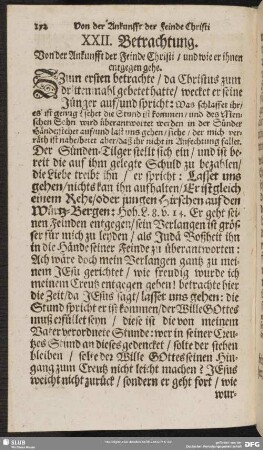 192 Von der Ankunfft der Feinde Christi
XXII. Betrachtung.
Von der Ankunfft der Feinde Christi / und wie er ihnen
entgegen gehe.
Zum ersten betrachte / da Christus zum
dritten mahl gebetet hatte / wecket er seine
Jünger auf / und spricht: Was schlaffet ihr /
es ist genug / siehet die Stund ist kommen / und des Men-
schen Sohn wird überantwortet werden in der Sünder
Hände / stehet auf / und last uns gehen / siehe / der mich ver-
räth ist nahe
Der Sünden-Tilger stellt sich ein / und ist be-
reit die auf ihm gelegte Schuld zu bezahlen /
die Liebe treibt ihn / er spricht: Lasset uns
gehen / nichts kan ihn aufhalten / Er ist gleich
einem Rehe / oder jungen Hirschen auf den
Würtz-Bergen: Hoh. L. 8. v. 14. Er geht sei-
nen Feinden entgegen / sein Verlangen ist grös-
ser für mich zu leyden / als Judä Boßheit ihn
in die Hände seiner Feinde zu überantworten:
Ach wäre doch mein Verlangen gantz zu mei-
nem JEsu gerichtet / wie freudig wurde ich
meinem Creutz entgegen gehen! betrachte hier
die Zeit / da JEsus sagt / lasset uns gehen: die
Stund spricht er ist kommen / der Wille GOttes
muß erfüllet seyn / diese ist die von meinem
Vater verordnete Stunde: wer in seiner Creu-
tzes Stund an dieses gedencket / solte der stehen
bleiben / solte der Wille GOttes seinen Hin-
gang zum Creutz nicht leicht machen? JEsus
weicht nicht zurück / sondern er geht fort / wie
wur-
SLUB